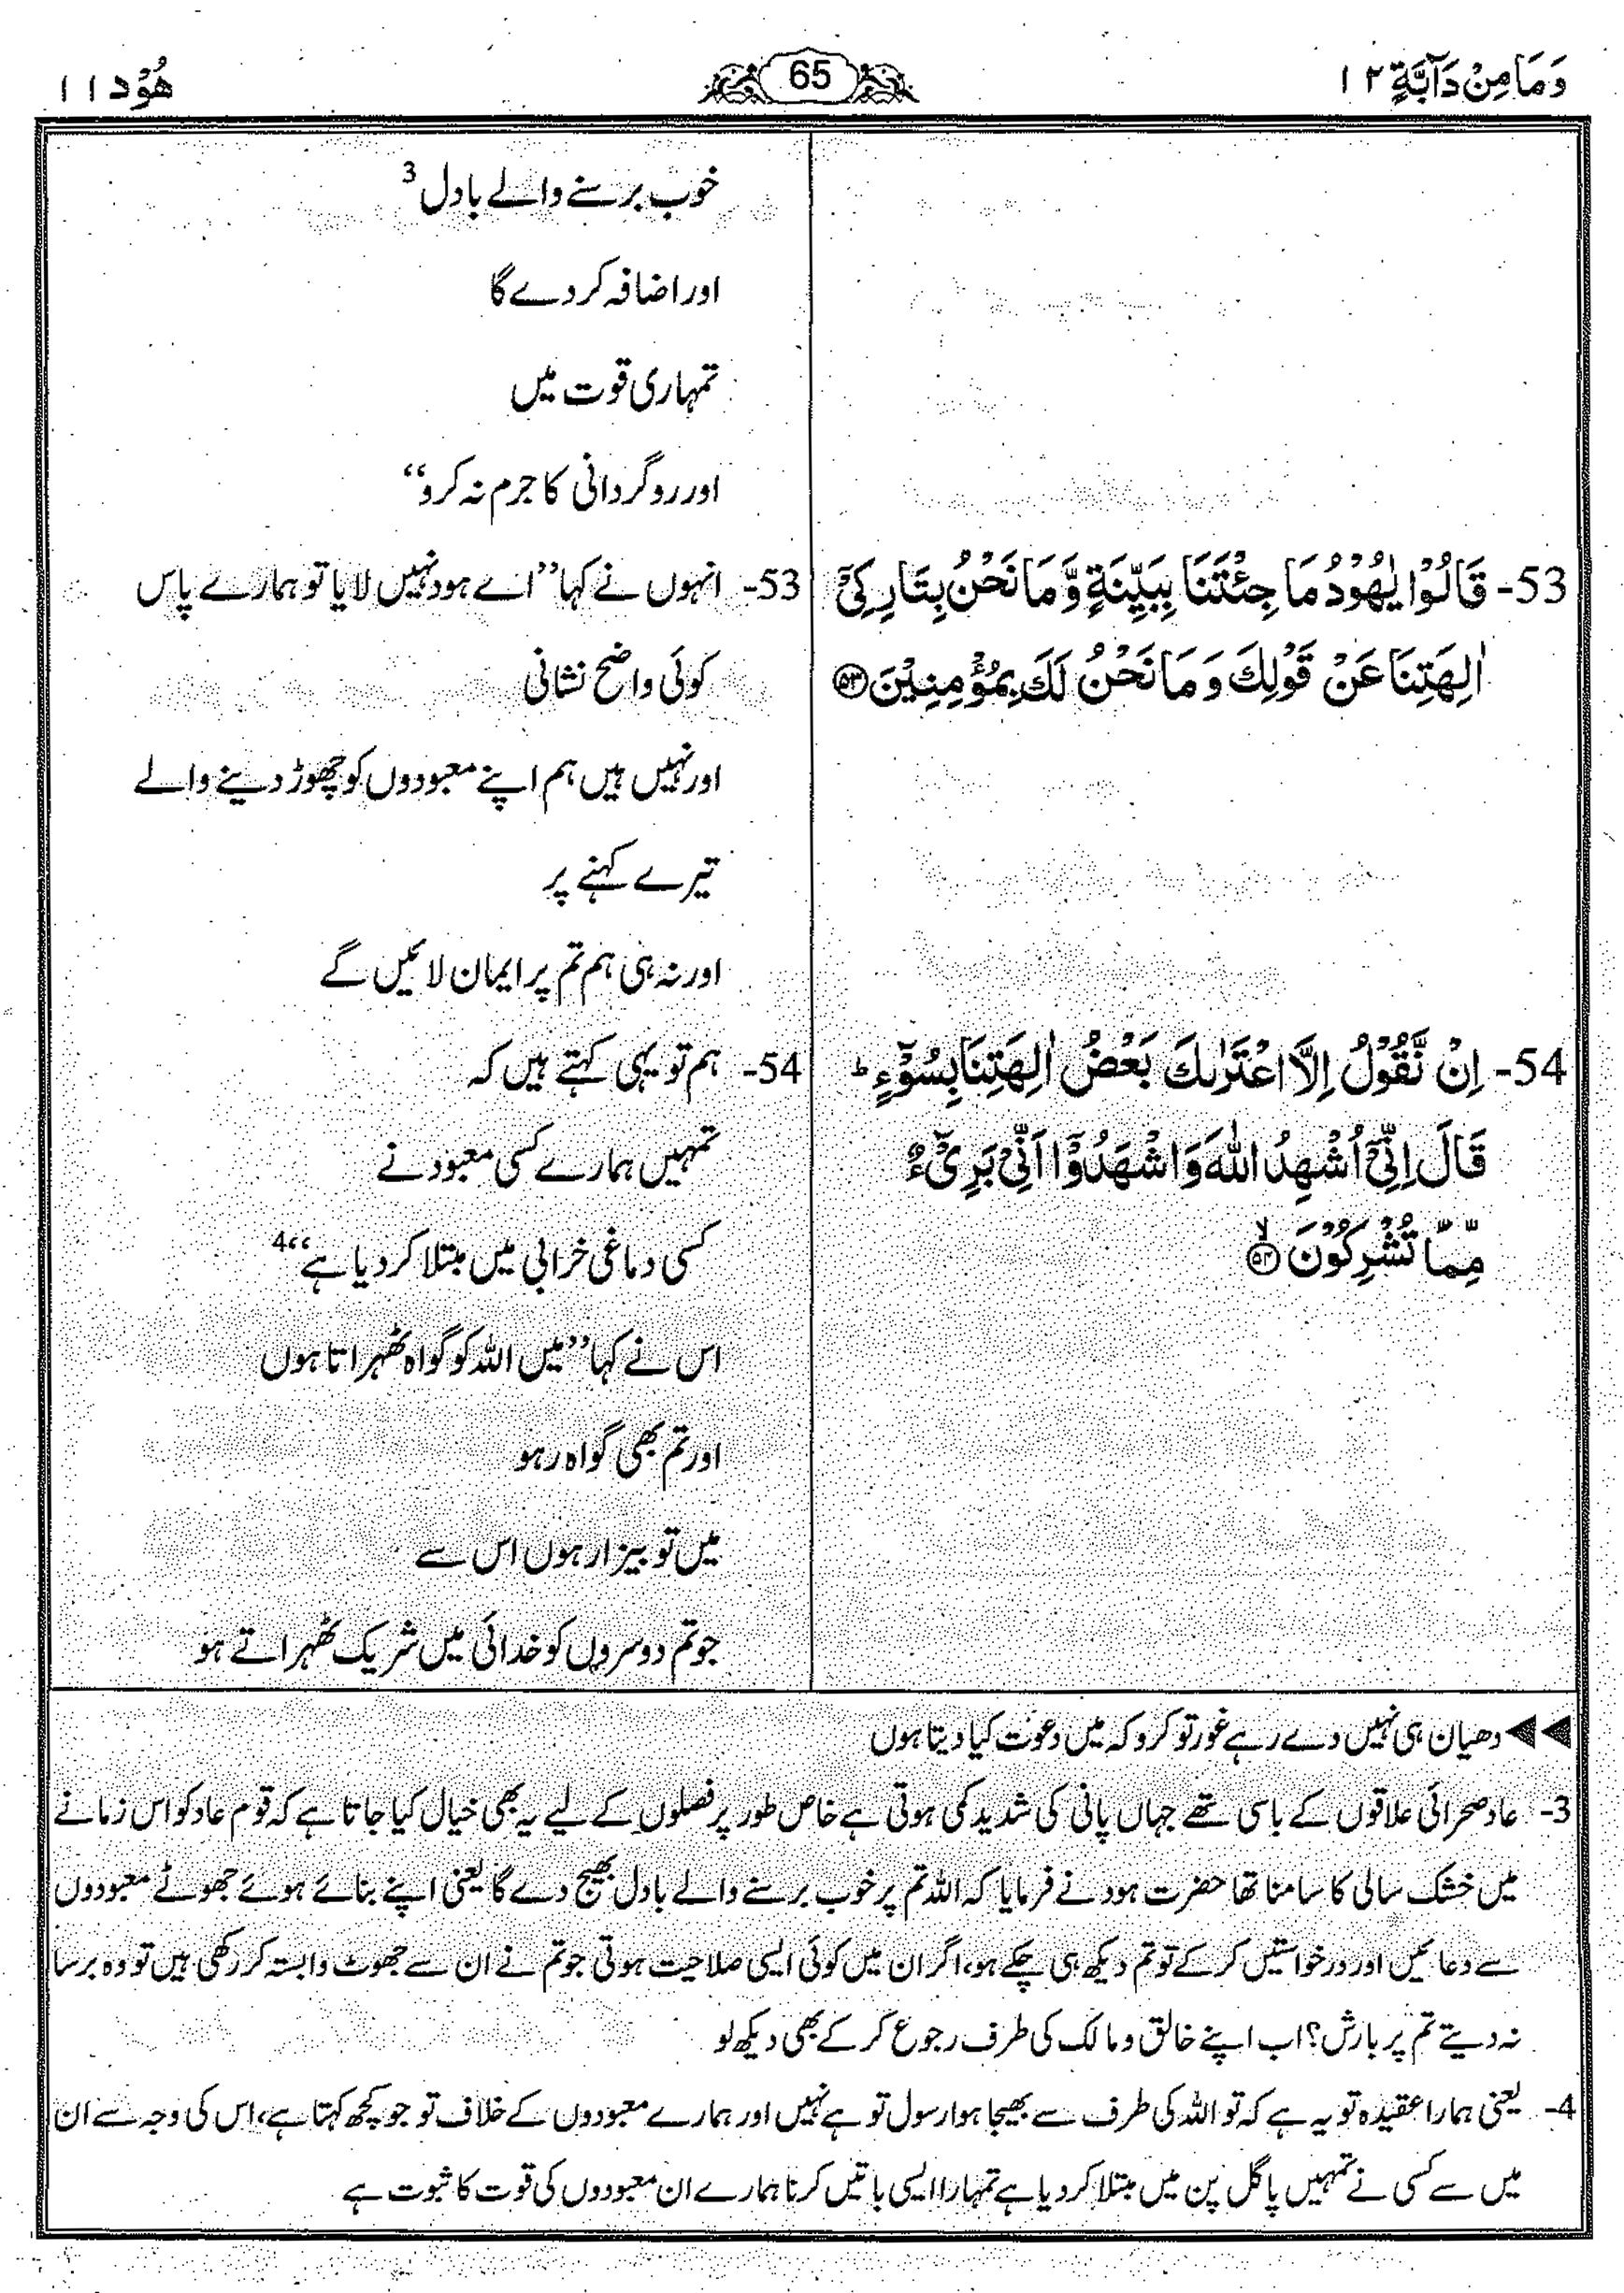 وَمَا مِنْ دَآبَّةٍ ١٢
65
هُوْد ١١
خوب برسنے والے بادل 3
اور اضافہ کر دے گا
تمہاری قوت میں
اور روگردانی کا جرم نہ کرو‘‘
53- قَالُوْا يٰهُوْدُ مَا جِئْتَنَا بِبَيِّنَةٍ وَّمَا نَحْنُ بِتَارِكِيْٓ
اٰلِهَتِنَا عَنْ قَوْلِكَ وَمَا نَحْنُ لَكَ بِمُؤْمِنِيْنَ ۝٥٣
53- انہوں نے کہا ’’اے ہود نہیں لایا تو ہمارے پاس
کوئی واضح نشانی
اور نہیں ہیں ہم اپنے معبودوں کو چھوڑ دینے والے
تیرے کہنے پر
اور نہ ہی ہم تم پر ایمان لائیں گے
54- اِنْ نَّقُوْلُ اِلَّا اعْتَرٰىكَ بَعْضُ اٰلِهَتِنَا بِسُوْٓءٍ ؕ
قَالَ اِنِّيْٓ اُشْهِدُ اللّٰهَ وَاشْهَدُوْٓا اَنِّيْ بَرِيْٓءٌ
مِّمَّا تُشْرِكُوْنَ ۝٥٤ۙ
54- ہم تو یہی کہتے ہیں کہ
تمہیں ہمارے کسی معبود نے
کسی دماغی خرابی میں مبتلا کر دیا ہے‘‘ 4
اس نے کہا ’’میں اللہ کو گواہ ٹھہراتا ہوں
اور تم بھی گواہ رہو
میں تو بیزار ہوں اس سے
جو تم دوسروں کو خدائی میں شریک ٹھہراتے ہو
◀◀ دھیان ہی نہیں دے رہے غور تو کرو کہ میں دعوت کیا دیتا ہوں
3- عاد صحرائی علاقوں کے باسی تھے جہاں پانی کی شدید کمی ہوتی ہے خاص طور پر فصلوں کے لیے یہ بھی خیال کیا جاتا ہے کہ قوم عاد کو اس زمانے
میں خشک سالی کا سامنا تھا حضرت ہود نے فرمایا کہ اللہ تم پر خوب برسنے والے بادل بھیج دے گا یعنی اپنے بنائے ہوئے جھوٹے معبودوں
سے دعائیں اور درخواستیں کر کے تو تم دیکھ ہی چکے ہو، اگر ان میں کوئی ایسی صلاحیت ہوتی جو تم نے ان سے جھوٹ وابستہ کر رکھی ہیں تو وہ برسا
نہ دیتے تم پر بارش؟ اب اپنے خالق و مالک کی طرف رجوع کر کے بھی دیکھ لو
4- یعنی ہمارا عقیدہ تو یہ ہے کہ تو اللہ کی طرف سے بھیجا ہوا رسول تو ہے نہیں اور ہمارے معبودوں کے خلاف تو جو کچھ کہتا ہے، اس کی وجہ سے ان
میں سے کسی نے تمہیں پاگل پن میں مبتلا کر دیا ہے تمہارا ایسی باتیں کرنا ہمارے ان معبودوں کی قوت کا ثبوت ہے